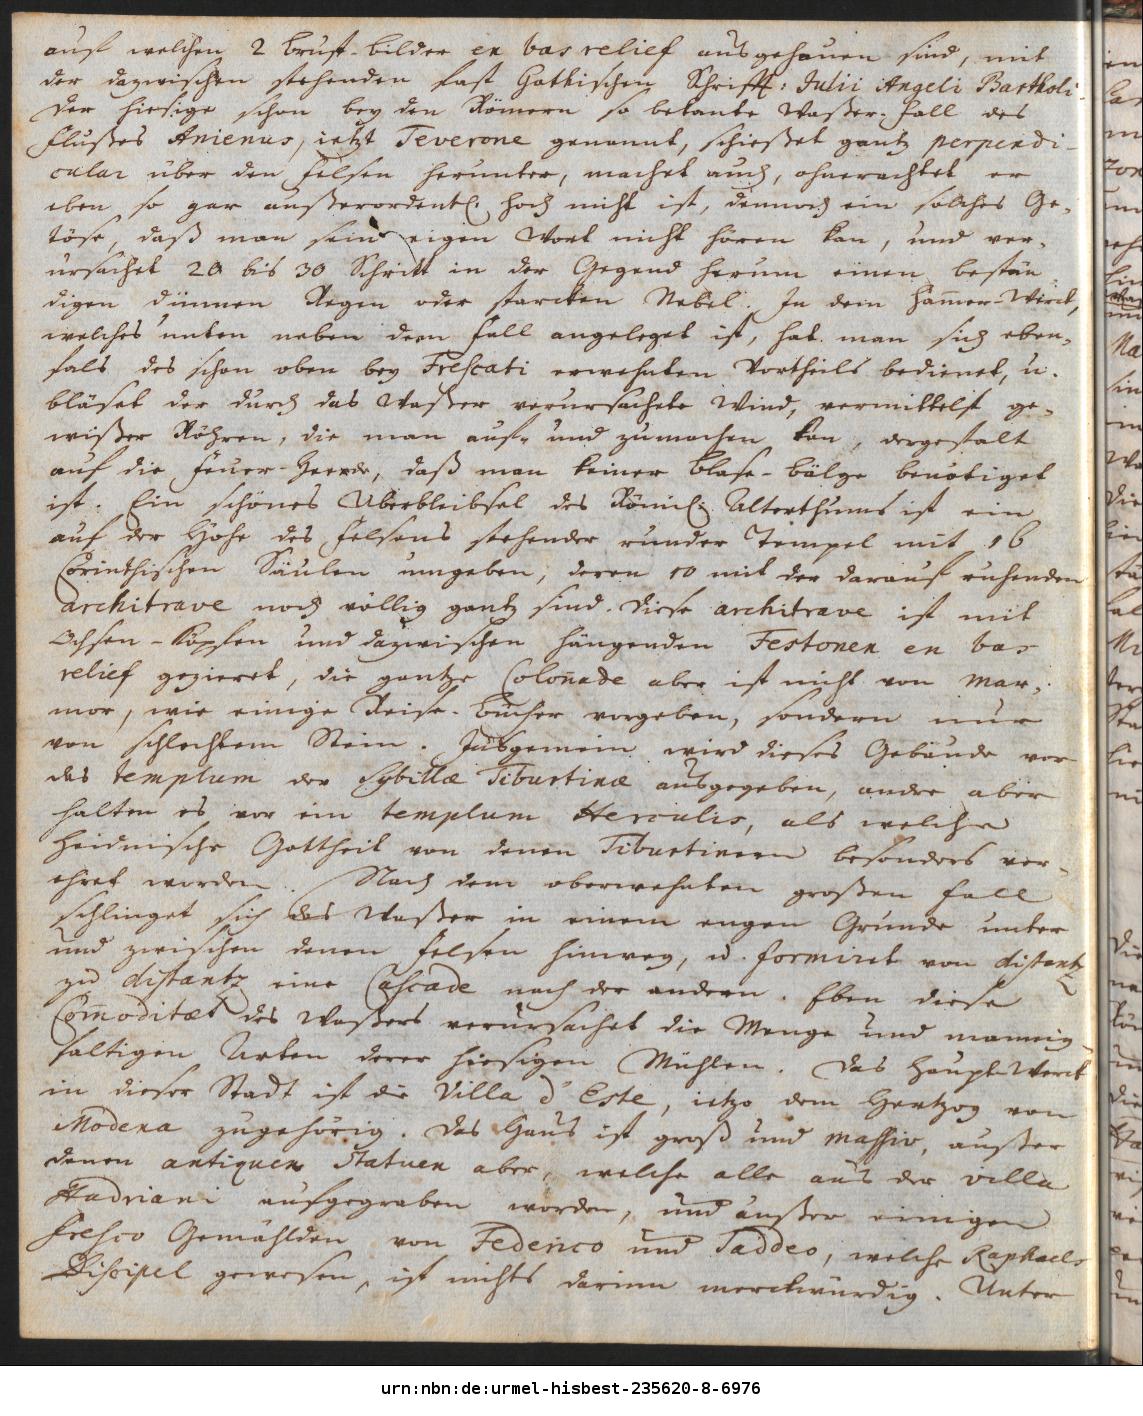 auf welchen 2 Brust-bilder en bas relief ausgehauen sind, mit
der dazwischen stehenden fast Gothischen Schrifft: Julii Angeli Bartholi.
Der hiesige schon bey den Römern so bekante Waßer-Fall des
Flußes Anienus, ietzt Teverone genannt, schießet gantz perpendi-
cular über den Felsen herunter, machet auch, ohnerachtet er
eben so gar außerordentl. hoch nicht ist, dennoch ein solches Ge-
töse, daß man sein eigen Wort nicht hören kan, und ver-
ursachet 20 bis 30 Schritt in der Gegend herum einen bestän
digen dünnen Regen oder starcken Nebel. In dem Ham̄er-Werck,
welches unten neben dem Fall angeleget ist, hat man sich eben-
fals des schon oben bey Frescati erwehnten Vortheils bedienet, u.
bläset der durch das Waßer verursachte Wind, vermittelst ge-
wißer Röhren, die man auf- und zumachen kan, dergestalt
auf die Feuer-Heerde, daß man keiner Blase-bälge benötiget
ist. Ein schönes Uberbleibsel des Römis. Alterthums ist ein
auf der Höhe des Felsens stehender runder Tempel mit 16
Corinthischen Säulen umgeben, deren 10 mit der darauf ruhenden
architrave noch völlig gantz sind. Diese architrave ist mit
Ochsen-Köpfen und dazwischen hängenden Festonen en bas
relief gezieret, die gantze Colon̄ade aber ist nicht von Mar-
mor, wie einige Reise-Bücher vorgeben, sondern nur
von schlechtem Stein. Insgemein wird dieses Gebäude vor
das templum der Sybillæ Tiburtinæ ausgegeben, andre aber
halten es vor ein templum Herculis, als welche
Heidnische Gottheit von denen Tiburtinern besonders ver-
ehret worden. Nach dem oberwehnten großen Fall
schlinget sich das Waßer in einem engen Grunde unter
und zwischen denen Felsen hinweg, u. formiret von distantz
zu distantz eine Cascade nach der andern. Eben diese
Com̄oditæt des Waßers verursachet die Menge und mannig-
faltigen Arten derer hiesigen Mühlen. Das Haupt-Werck
in dieser Stadt ist die Villa d'Este, ietzo dem Hertzog von
Modena zugehörig. Das Haus ist groß und massiv, außer
denen antiquen Statuen aber, welche alle aus der villa
Hadriani aufgegraben worden, und außer einigen
Fresco Gemählden von Federico und Taddeo, welche Raphaels
Discipel gewesen, ist nichts darinn merckwürdig. Unter
urn:nbn:de:urmel-hisbest-235620-8-6976